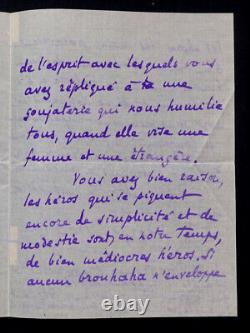 de l'esprit avec lesquels vous
avez répliqué à une
goujaterie qui nous humilie
tous, quand elle vise une
femme et une étrangère.
Vous avez bien raison,
les héros qui se piquent
encore de simplicité et de
modestie sont, en notre temps,
de bien médiocres héros. Si
aucun brouhaha n'enveloppe
ebay